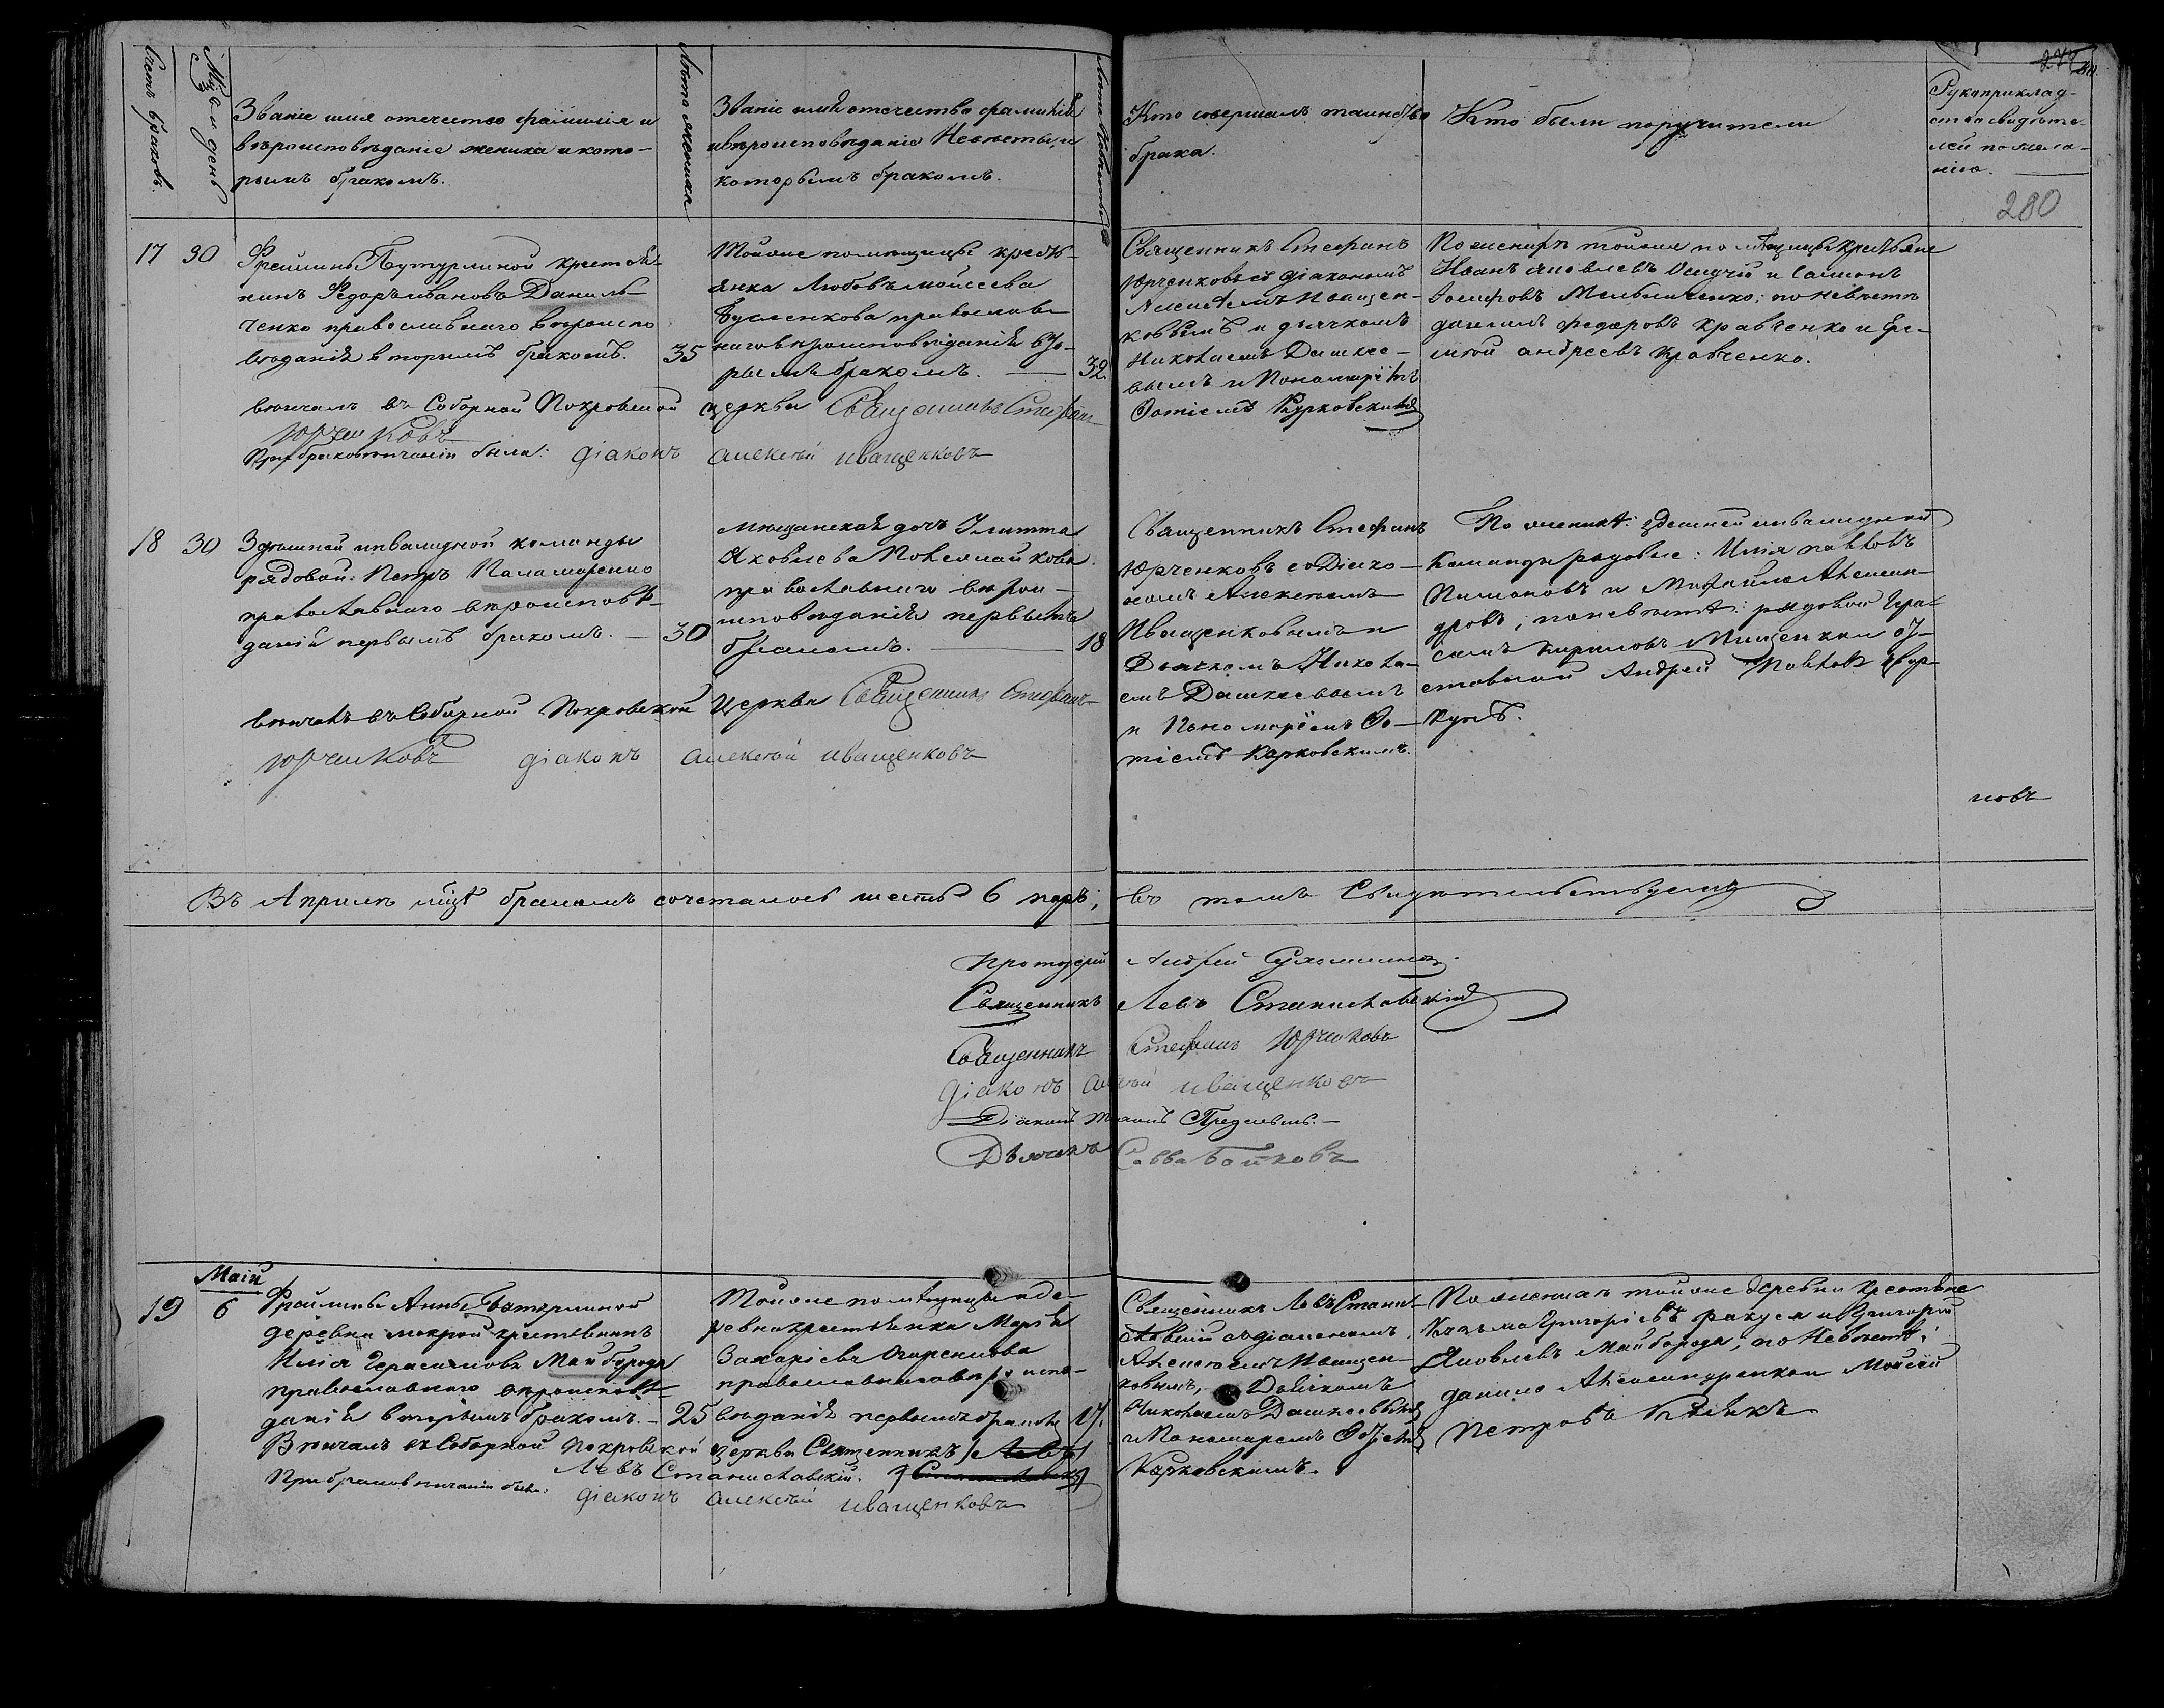 Счетъ браковъ.
Мцъ и день
Званіе имя отечество фамилія и
вѣроисповѣданіе жениха и кото-
рымъ бракомъ.
Лѣта жениха
Званіе имя отечество фамилія
и вѣроисповѣданіе Невѣсты, и
которымъ бракомъ.
Лѣта Невѣсты
Кто совершалъ таинство
брака.
Кто были поручители
Рукоприклад-
ство свидѣте-
лей по жела-
нію.
280
17 30
Фрейлины Бутурлиной крестья-
нинъ Федоръ Ивановъ Даниль-
ченко православнаго вѣроиспо
вѣданія вторымъ бракомъ. 35
Тойже помѣщицы кресть-
янка Любовь Моисеева
православ-
наго вѣроисповѣданія вто-
рымъ бракомъ. 32.
Священникъ Стефанъ
Юрченковъ съ діакономъ
Алексѣемъ Иващен-
ковымъ и дьячкомъ
Николаемъ Дашкее-
вымъ и Пономаремъ
Фотіемъ Курковскимъ
По женихѣ тойже помѣщицы крестьяне
Иванъ Яковлевъ и Самсонъ
Іосифовъ Мельниченко; по невѣстѣ
Данило Федоровъ Кравченко и Ере-
мѣй Андреевъ Кравченко.
вѣнчалъ въ Соборной Покровской церкви Священникъ Стефанъ
Юрченковъ
При браковѣнчаніи были: діаконъ Алексѣй Иващенковъ
18 30
Здѣшней инвалидной команды
рядовой: Петръ Паламаренко
православнаго вѣроисповѣ-
данія первымъ бракомъ. — 30
Мѣщанская дочь Улитта
Яковлева
православнаго вѣрои-
сповѣданія первымъ
бракомъ. 18
Священникъ Стефанъ
Юрченковъ со Діако-
номъ Алексѣемъ
Иващенковымъ и
Дьячкомъ Никола-
емъ Дашкеевымъ
и Пономаремъ Фо-
тіемъ Курковскимъ.
По женихѣ: здѣшней инвалидной
команды рядовые: Илія Павловъ
и Михайло Алексан-
дровъ; по невѣстѣ: рядовой Гера-
симъ Кириловъ Мищенко и от-
ставной Андрей Павловъ
вѣнчалъ въ Соборной Покровской Церкви Священникъ Стефанъ
Юрченковъ діаконъ Алексѣй Иващенковъ
новъ
Въ Апрѣлѣ мцѣ бракомъ сочеталось шесть 6 паръ; въ томъ Свидѣтельствуемъ
Протоіерей Андрей
Священникъ Левъ Станиславскій
Священникъ Стефанъ Юрченковъ
Діаконъ Алексѣй Иващенковъ
Діаконъ
Дьячекъ Савва Бойковъ
Маій
19 6
Фрейлины Анны Бутурлиной
деревни мокрой крестьянинъ
Илія Герасимовъ Майборода
православнаго вѣроисповѣ-
данія вторымъ бракомъ. — 25
Тойже помѣщицы и де-
ревни крестьянка Марія
Захаріева
православнаго вѣроиспо-
вѣданія первымъ бракомъ 17.
Священникъ Левъ Стани-
славскій съ діакономъ
Алексѣемъ Иващен-
ковымъ, Дьячкомъ
Николаемъ Дашкеевымъ
и Пономаремъ Фотіемъ
Курковскимъ.
По женихѣ тойже деревни крестьяне
Кузьма Григоріевъ и Григорій
Яковлевъ Майборода; по Невѣстѣ:
Данило Александренко и Моисей
Петровъ
Вѣнчалъ въ Соборной Покровской церкви Священникъ Левъ
Левъ Станиславскій.
При браковѣнчаніи были: діаконъ Алексѣй Иващенковъ